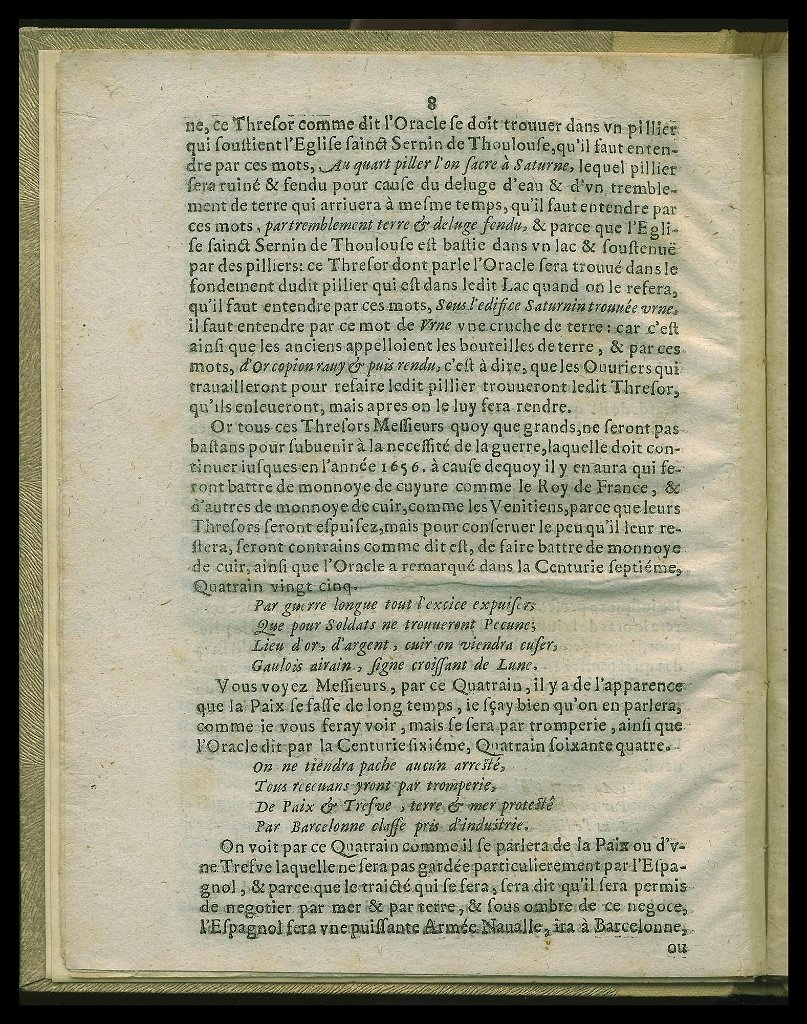 8
ne, ce Threſor comme dit l'Oracle ſe doit trouuer dans vn pillier
qui ſouſtient l'Egliſe ſainct Sernin de Thoulouſe, qu'il faut enten-
dre par ces mots, Au quart piller l'on ſacre à Saturne, lequel pillier
ſera ruiné & fendu pour cauſe du deluge d'eau & d'vn tremble-
ment de terre qui arriuera à meſme temps, qu'il faut entendre par
ces mots, par tremblement terre & deluge fendu, & parce que l'Egli-
ſe ſainct Sernin de Thoulouſe eſt baſtie dans vn lac & ſouſtenuë
par des pilliers: ce Threſor dont parle l'Oracle ſera trouué dans le
fondement dudit pillier qui eſt dans ledit Lac quand on le refera,
qu'il faut entendre par ces mots, Sous l'edifice Saturnin trouuée vrne,
il faut entendre par ce mot de Vrne vne cruche de terre: car c'eſt
ainſi que les anciens appelloient les bouteilles de terre, & par ces
mots, d'Or copion rauy & puis rendu, c'eſt à dire, que les Ouuriers qui
trauailleront pour refaire ledit pillier trouueront ledit Threſor,
qu'ils enleueront, mais apres on le luy fera rendre.
Or tous ces Threſors Meſſieurs quoy que grands, ne ſeront pas
baſtans pour ſubuenir à la neceſſité de la guerre, laquelle doit con-
tinuer iuſques en l'année 1656. à cauſe dequoy il y en aura qui fe-
ront battre de monnoye de cuyure comme le Roy de France, &
d'autres de monnoye de cuir, comme les Venitiens, parce que leurs
Threſors ſeront eſpuiſez, mais pour conſeruer le peu qu'il leur re-
ſtera, ſeront contrains comme dit eſt, de faire battre de monnoye
de cuir, ainſi que l'Oracle a remarqué dans la Centurie ſeptiéme,
Quatrain vingt cinq.
Par guerre longue tout l'excice expuiſer;
Que pour Soldats ne trouueront Pecune;
Lieu d'or, d'argent, cuir on viendra cuſer,
Gaulois airain, ſigne croiſſant de Lune.
Vous voyez Meſſieurs, par ce Quatrain, il y a de l'apparence
que la Paix ſe faſſe de long temps, ie ſçay bien qu'on en parlera,
comme ie vous feray voir, mais ſe ſera par tromperie, ainſi que
l'Oracle dit par la Centurie ſixiéme, Quatrain ſoixante quatre.
On ne tiendra pache aucun arreſté,
Tous receuans yront par tromperie,
De Paix & Trefve, terre & mer proteſté
Par Barcelonne claſſe pris d'induſtrie.
On voit par ce Quatrain comme il ſe parlera de la Paix ou d'v-
ne Trefve laquelle ne ſera pas gardée particulierement par l'Eſpa-
gnol, & parce que le traicté qui ſe fera, ſera dit qu'il ſera permis
de negotier par mer & par terre, & ſous ombre de ce negoce,
l'Eſpagnol fera vne puiſſante Armée Naualle, ira à Barcelonne,
ou